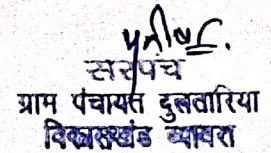 सरपंच
ग्राम पंचायत दुलतारिया
विकासखंड ब्यावरा